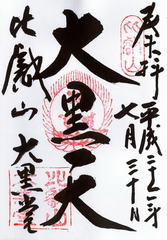 奉拝
平成二十二年
七月三十日
大黒天
比叡山
大黒堂